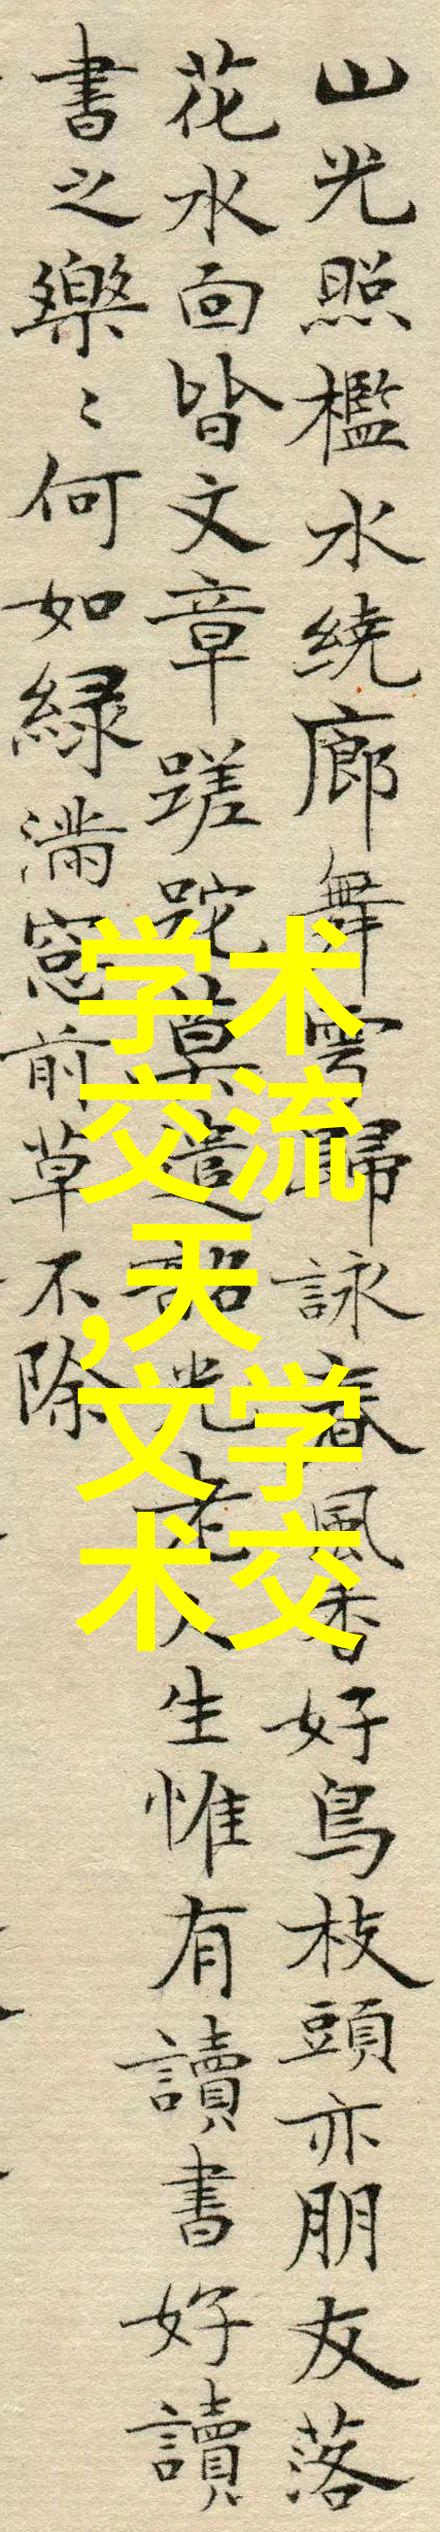 山光照檻水繞廊舞雩歸詠春風香好鳥枝頭亦朋友落
花水面皆文章蹉跎莫遣韶光老人生惟有讀書好讀
書之樂〻何如綠滿窓前草不除
学术
交流
,天
文学
术交